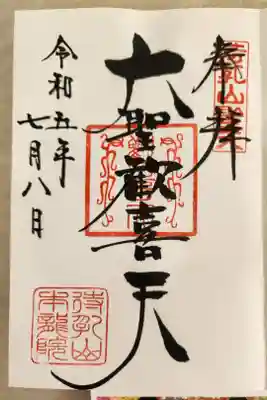 奉拝
大聖歓喜天
令和五年
七月八日
待乳山
本龍院